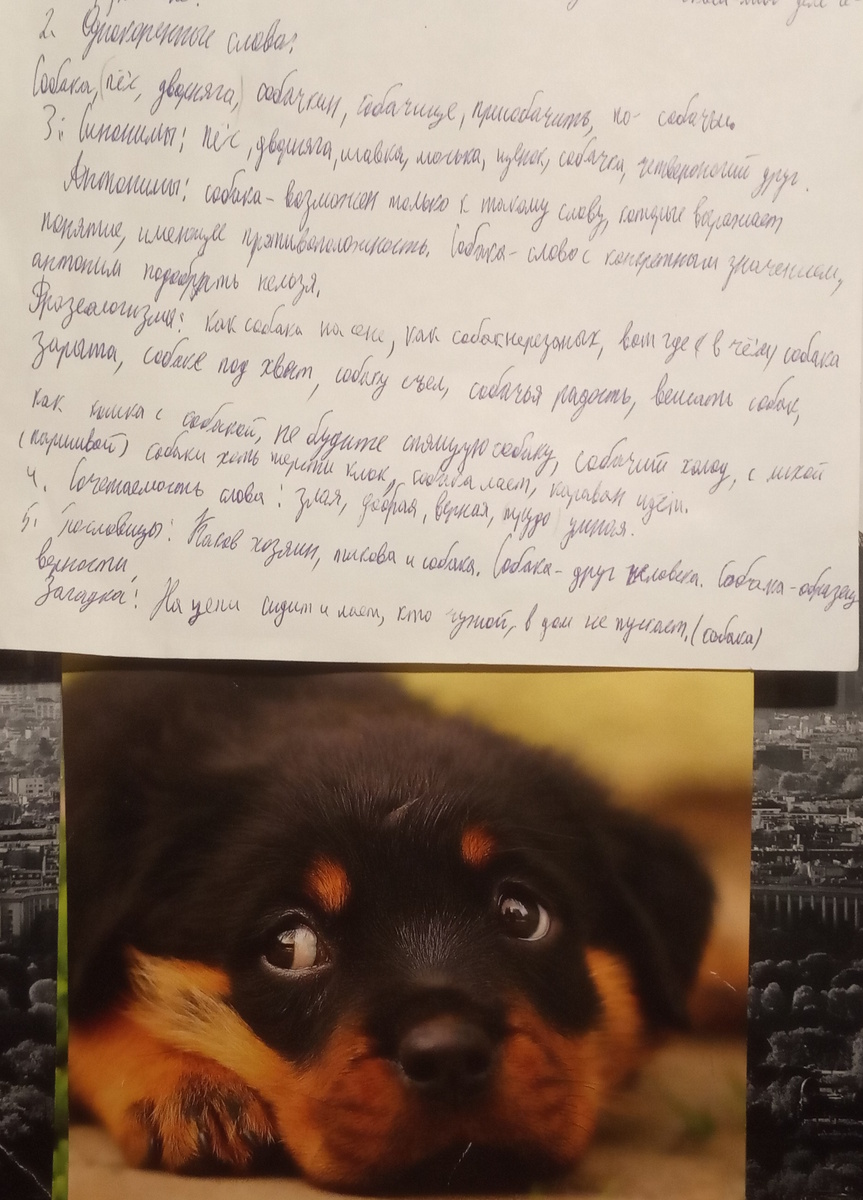 2. Однокоренные слова:
Собака, (пёс, дворняга,) собачкин, собачище, присобачить, по- собачьи.
3. Синонимы: пёс, дворняга, шавка, моська, щенок, собачка, четвероногий друг.
Антонимы: собака - возможен только к такому слову, которые выражает
понятие, имеющее противоположность. Собака - слово с конкретным значением,
антоним подобрать нельзя.
Фразеологизмы: как собака на сене, как собак нерезаных, вот где (в чём) собака
зарыта, собаке под хвост, собаку съел, собачья радость, вешать собак,
как кошка с собакой, не будите спящую собаку, собачий холод, с лихой
(паршивой) собаки хоть шерсти клок, собака лает, караван идёт.
4. Сочетаемость слова: злая, добрая, верная, умная.
5. Пословицы: Каков хозяин, такова и собака. Собака - друг человека. Собака - образец
верности.
Загадка: На цепи сидит и лает, кто чужой, в дом не пускает. (собака)